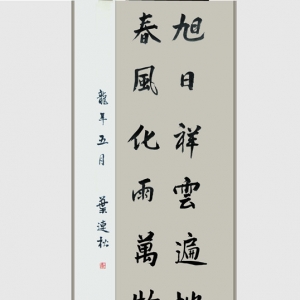 旭日祥雲遍
春風化雨萬
龍年五月 葉連松